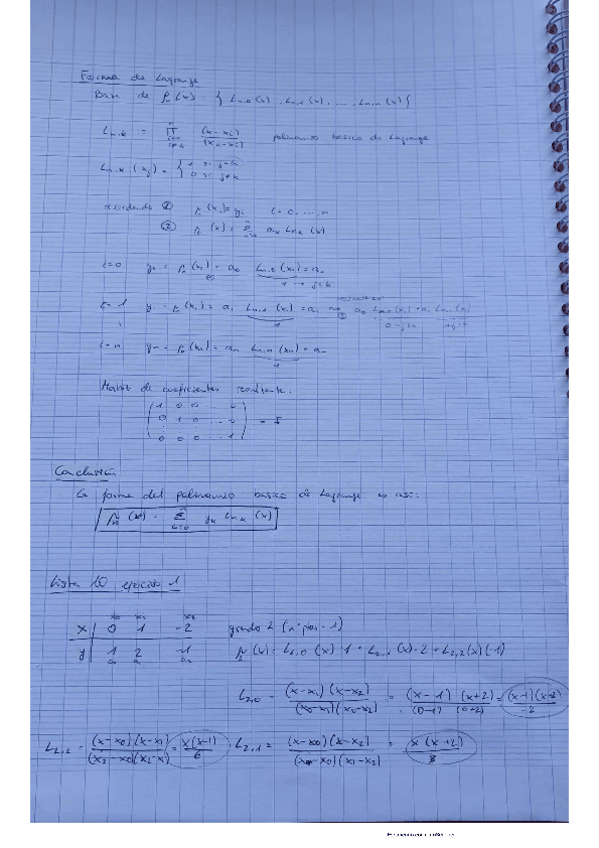 Forma de Lagrange
Base de Pn(x) = { Ln,0(x), Ln,1(x), ..., Ln,n(x) }
Ln,k = ∏ (x-xi)/(xk-xi) polinomio basico de Lagrange
Ln,k(xj) = { 1 si j=k
0 si j≠k
① Pn(xi)=yi i=0,...,n
② Pn(x) = Σ ak Ln,k(x)
i=0 y0 = Pn(x0) = a0 Ln,0(x0) = a0
1 → j=k
i=1 y1 = Pn(x1) = a1 Ln,1(x1) = a1
1
i=n yn = Pn(xn) = an Ln,n(xn) = an
1
Matriz de coeficientes resultante:
( 1 0 0 ... 0
0 1 0 ... 0
0 0 0 ... 1 ) = I
Conclusión
La forma del polinomio basico de Lagrange es así:
Pn(x) = Σ yk Ln,k(x)
Lista 10 ejercicio 1
x0 x1 x2
x | 0 1 -2
y | 1 2 -1
a0 a1 a2
grado 2 (nº ptos - 1)
P2(x) = L2,0(x)·1 + L2,1(x)·2 + L2,2(x)(-1)
L2,0 = (x-x1)(x-x2)/(x0-x1)(x0-x2) = (x-1)(x+2)/(0-1)(0+2) = (x-1)(x+2)/-2
L2,2 = (x-x0)(x-x1)/(x2-x0)(x2-x1) = x(x-1)/6 L2,1 = (x-x0)(x-x2)/(x1-x0)(x1-x2) = x(x+2)/3